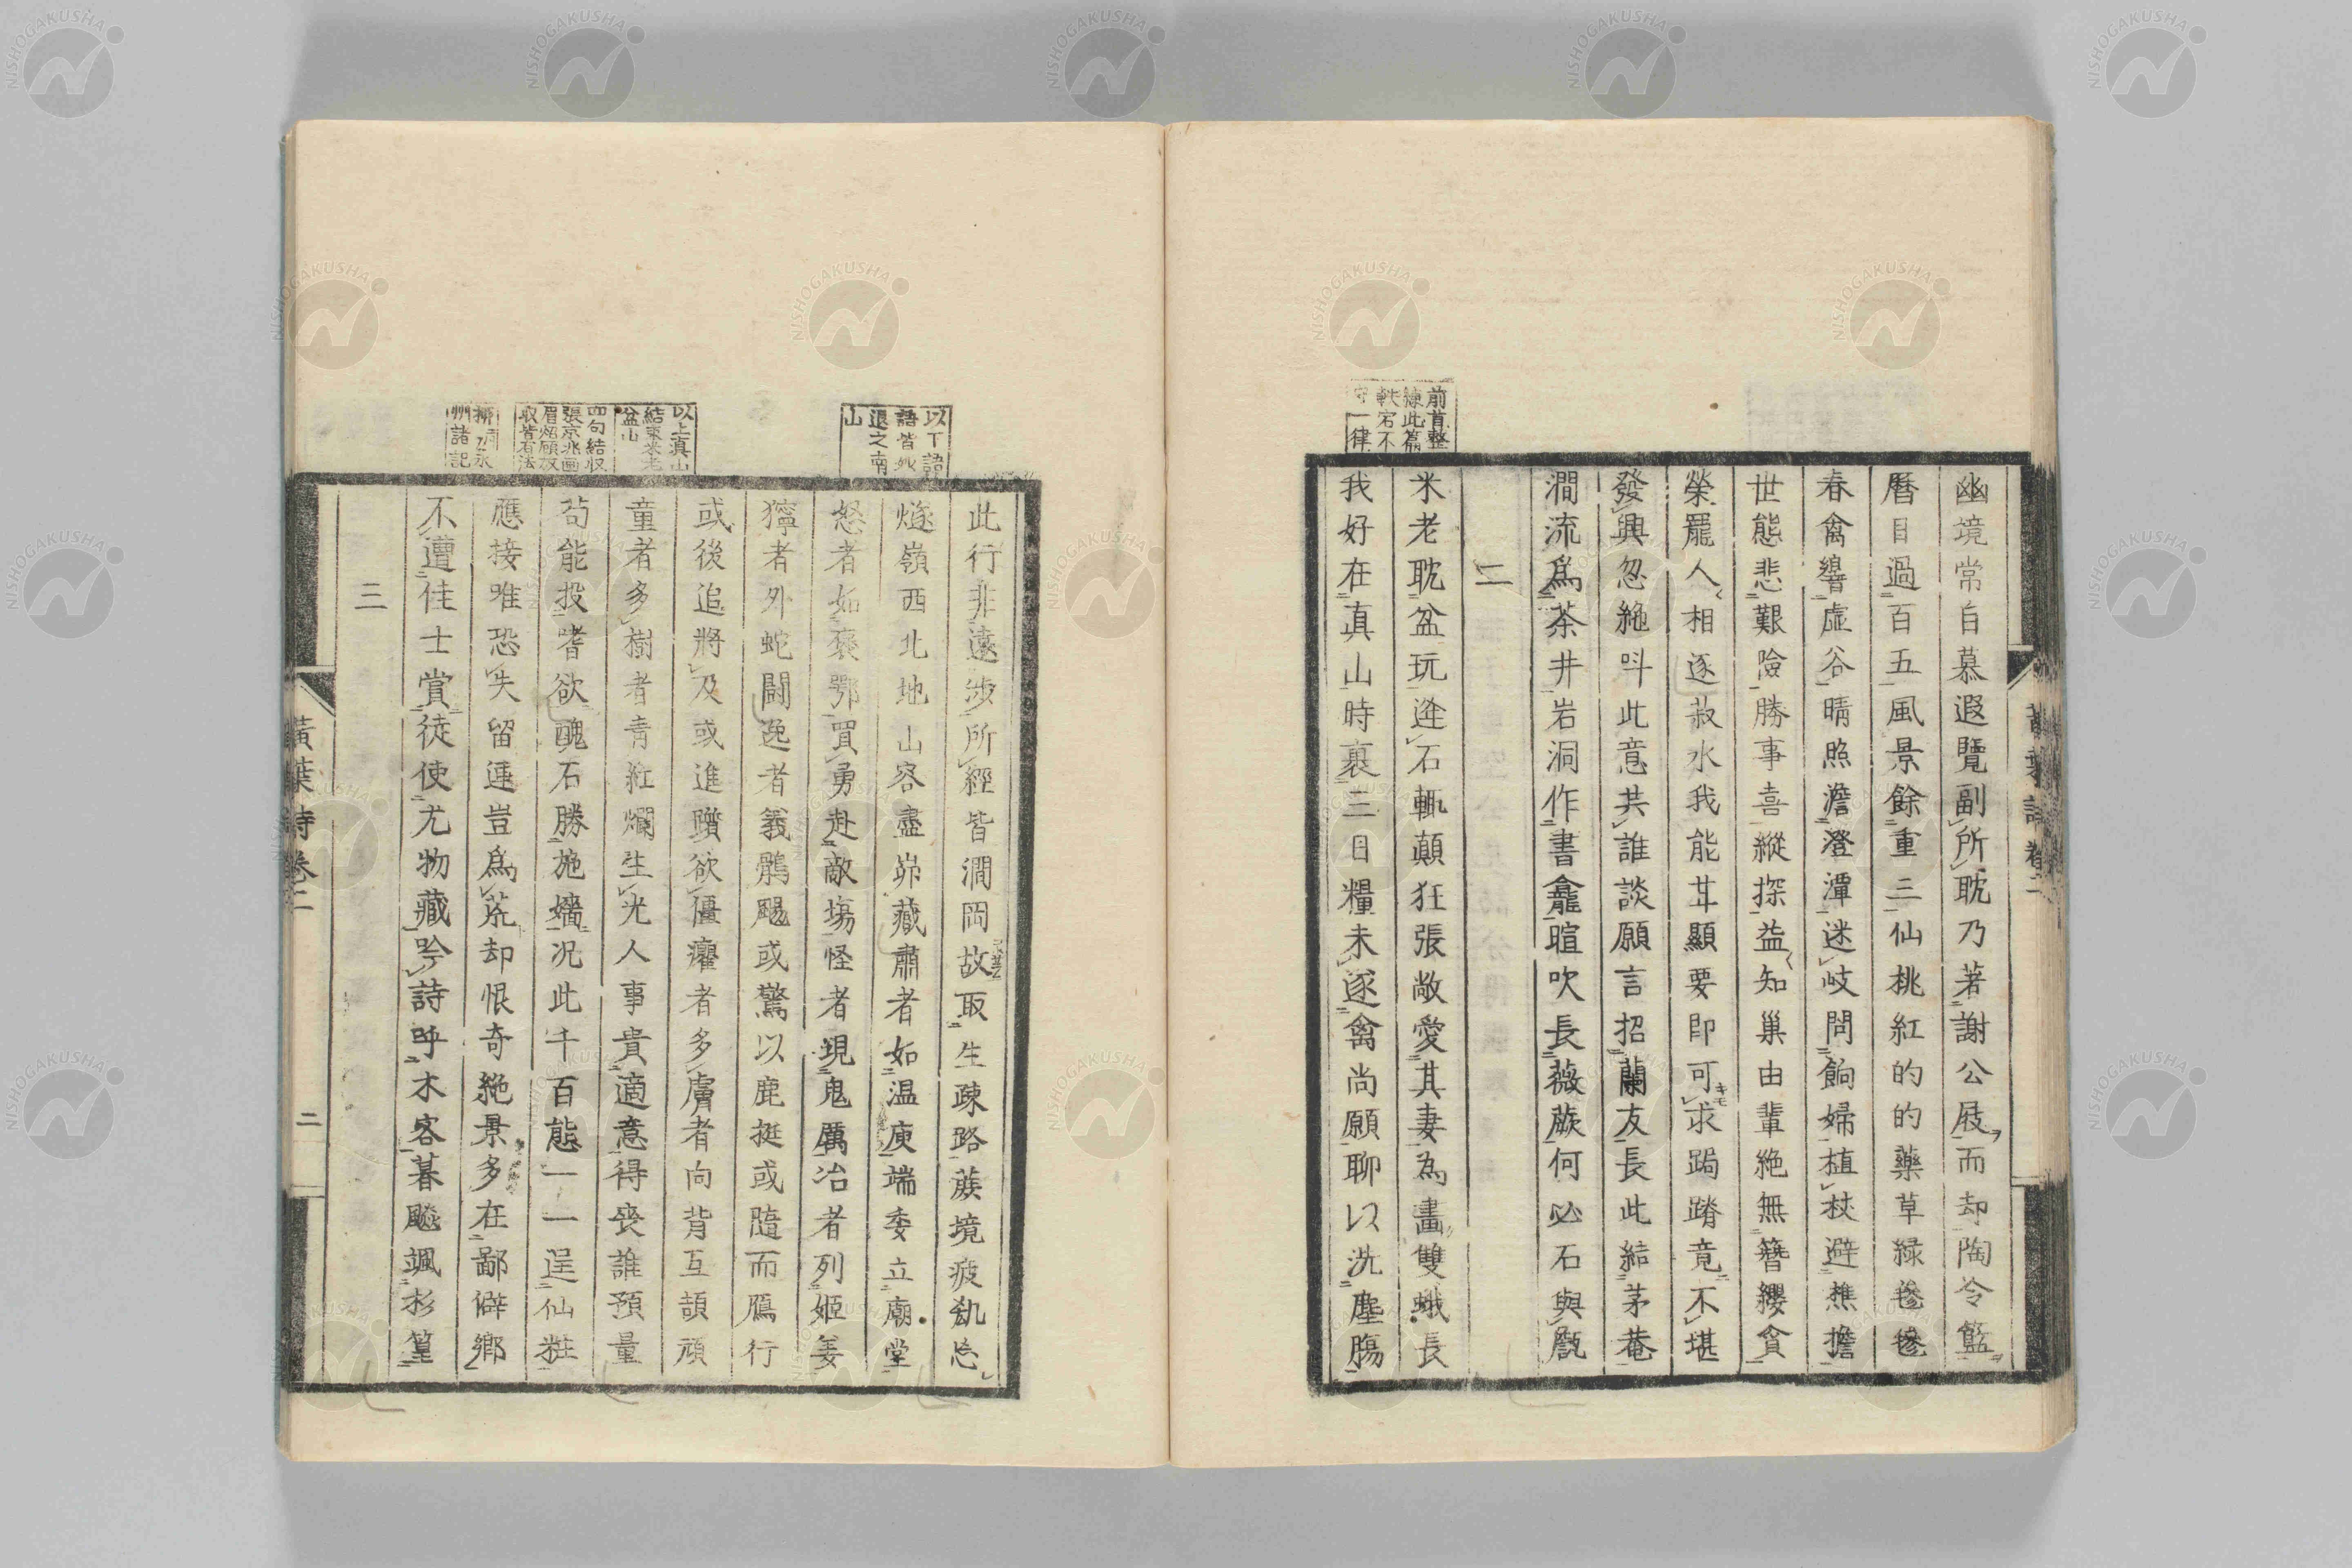 幽境常自慕遐覽副所耽乃著謝公屐而却陶令籃
曆日過百五風景餘重三仙桃紅的的藥草緑毿毿
春禽響虛谷晴照澹澄潭迷岐問餉婦植杖避樵擔
世態悲艱險勝事喜縱探益知巢由輩絶無簪纓貪
榮罷人相逐菽水我能甘顯要即可求跼蹐竟不堪
發興忽絶叫此意共誰談願言招蘭友長此結茅菴
澗流爲茶井岩洞作書龕暄吹長薇蕨何必石與甗
二
米老耽盆玩逢石輒顛狂張敞愛其妻為畫雙蛾長
我好在真山時裹三日糧未逐禽尚願聊以洗塵腸
前首整
練此篇
軼宕不
守一律
此行非遠涉所經皆澗岡故取生疎路蔟境疲飢忘
燧嶺西北地山容盡峁藏肅者如温庾端委立廟堂
怒者如褒鄂買勇赴敵塲怪者現鬼厲冶者列姬姜
獰者外蛇闘逸者義鶻颺或驚以鹿挺或隨而鴈行
或後追將及或進躓欲僵癯者多膚者向背互頡頏
童者多樹者青紅爛生光人事貴適意得喪誰預量
苟能投嗜欲醜石勝施嬙况此千百態一一逞仙粧
應接唯恐失留連豈爲荒却恨奇絶景多在鄙僻鄉
不遭佳士賞徒使尤物藏吟詩呼木客暮飈颯杉篁
三
以下諸
語皆妙
退之南
山
以上眞山
結束米老
盆山
四句結収
張京兆画
眉炤願放
取皆有法
柳州永
州諸記
黄葉詩卷二
二